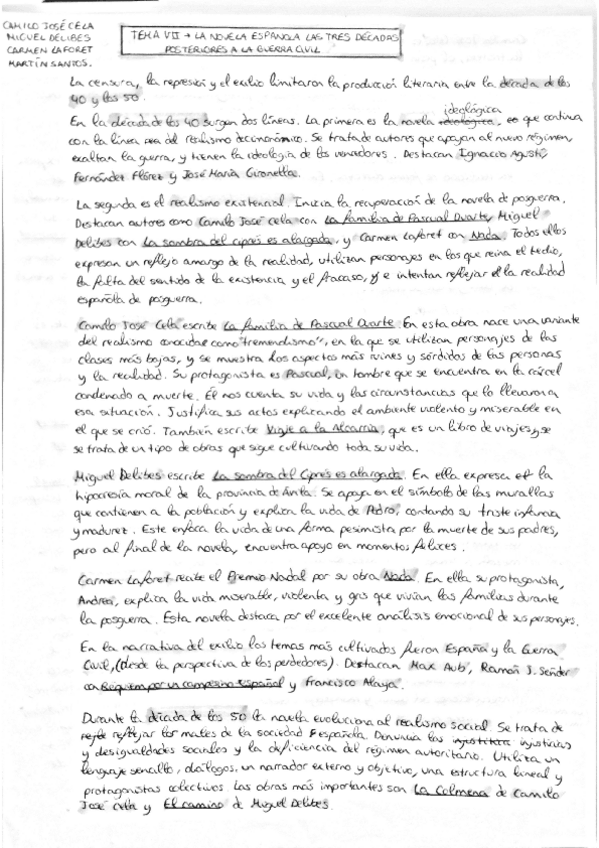 CAMILO JOSÉ CELA
MIGUEL DELIBES
CARMEN LAFORET
MARTÍN SANTOS.
TEMA VII → LA NOVELA ESPAÑOLA LAS TRES DÉCADAS
POSTERIORES A LA GUERRA CIVIL
La censura, la represión y el exilio limitaron la producción literaria entre la década de los
40 y los 50.
En la década de los 40 surgen dos líneas. La primera es la novela ideológica, que continua
con la línea del realismo decimonómico. Se trata de autores que apoyan al nuevo régimen,
exaltan la guerra, y tienen la ideología de los vencedores. Destacan Ignacio Agustí,
Fernández Flórez y José María Gironella.
La segunda es el realismo existencial. Inicia la recuperación de la novela de posguerra.
Destacan autores como Camilo José Cela con La familia de Pascual Duarte, Miguel
Delibes con La sombra del ciprés es alargada, y Carmen Laforet con Nada. Todos ellos
expresan un reflejo amargo de la realidad, utilizan personajes en los que reina el tedio,
la falta del sentido de la existencia y el fracaso, e intentan reflejar la realidad
española de posguerra.
Camilo José Cela escribe La familia de Pascual Duarte. En esta obra nace una variante
del realismo conocida como "tremendismo", en la que se utilizan personajes de las
clases más bajas, y se muestra los aspectos más ruines y sórdidos de las personas
y la realidad. Su protagonista es Pascual, un hombre que se encuentra en la cárcel
condenado a muerte. Él nos cuenta su vida y las circunstancias que lo llevaron a
esa situación. Justifica sus actos explicando el ambiente violento y miserable en
el que se crió. También escribe Viaje a la Alcarria, que es un libro de viajes, y se
se trata de un tipo de obras que sigue cultivando toda su vida.
Miguel Delibes escribe La sombra del Ciprés es alargada. En ella expresa la
hipocresía moral de la provincia de Ávila. Se apoya en el símbolo de las murallas
que contienen a la población y explica la vida de Pedro, contando su triste infancia
y madurez. Este enfoca la vida de una forma pesimista por la muerte de sus padres,
pero al final de la novela, encuentra apoyo en momentos felices.
Carmen Laforet recibe el Premio Nadal por su obra Nada. En ella su protagonista,
Andrea, explica la vida miserable, violenta y gris que vivían las familias durante
la posguerra. Esta novela destaca por el excelente análisis emocional de sus personajes.
En la narrativa del exilio los temas más cultivados fueron España y la Guerra
Civil, (desde la perspectiva de los perdedores). Destacan Max Aub, Ramón J. Sénder
con Réquiem por un campesino español y Francisco Ayala.
Durante la década de los 50 la novela evoluciona al realismo social. Se trata de
reflejar los males de la sociedad española. Denuncia las injusticias
y desigualdades sociales y la deficiencia del régimen autoritario. Utiliza un
lenguaje sencillo, diálogos, un narrador externo y objetivo, una estructura lineal y
protagonistas colectivos. Las obras más importantes son La Colmena de Camilo
José Cela y El camino de Miguel Delibes.